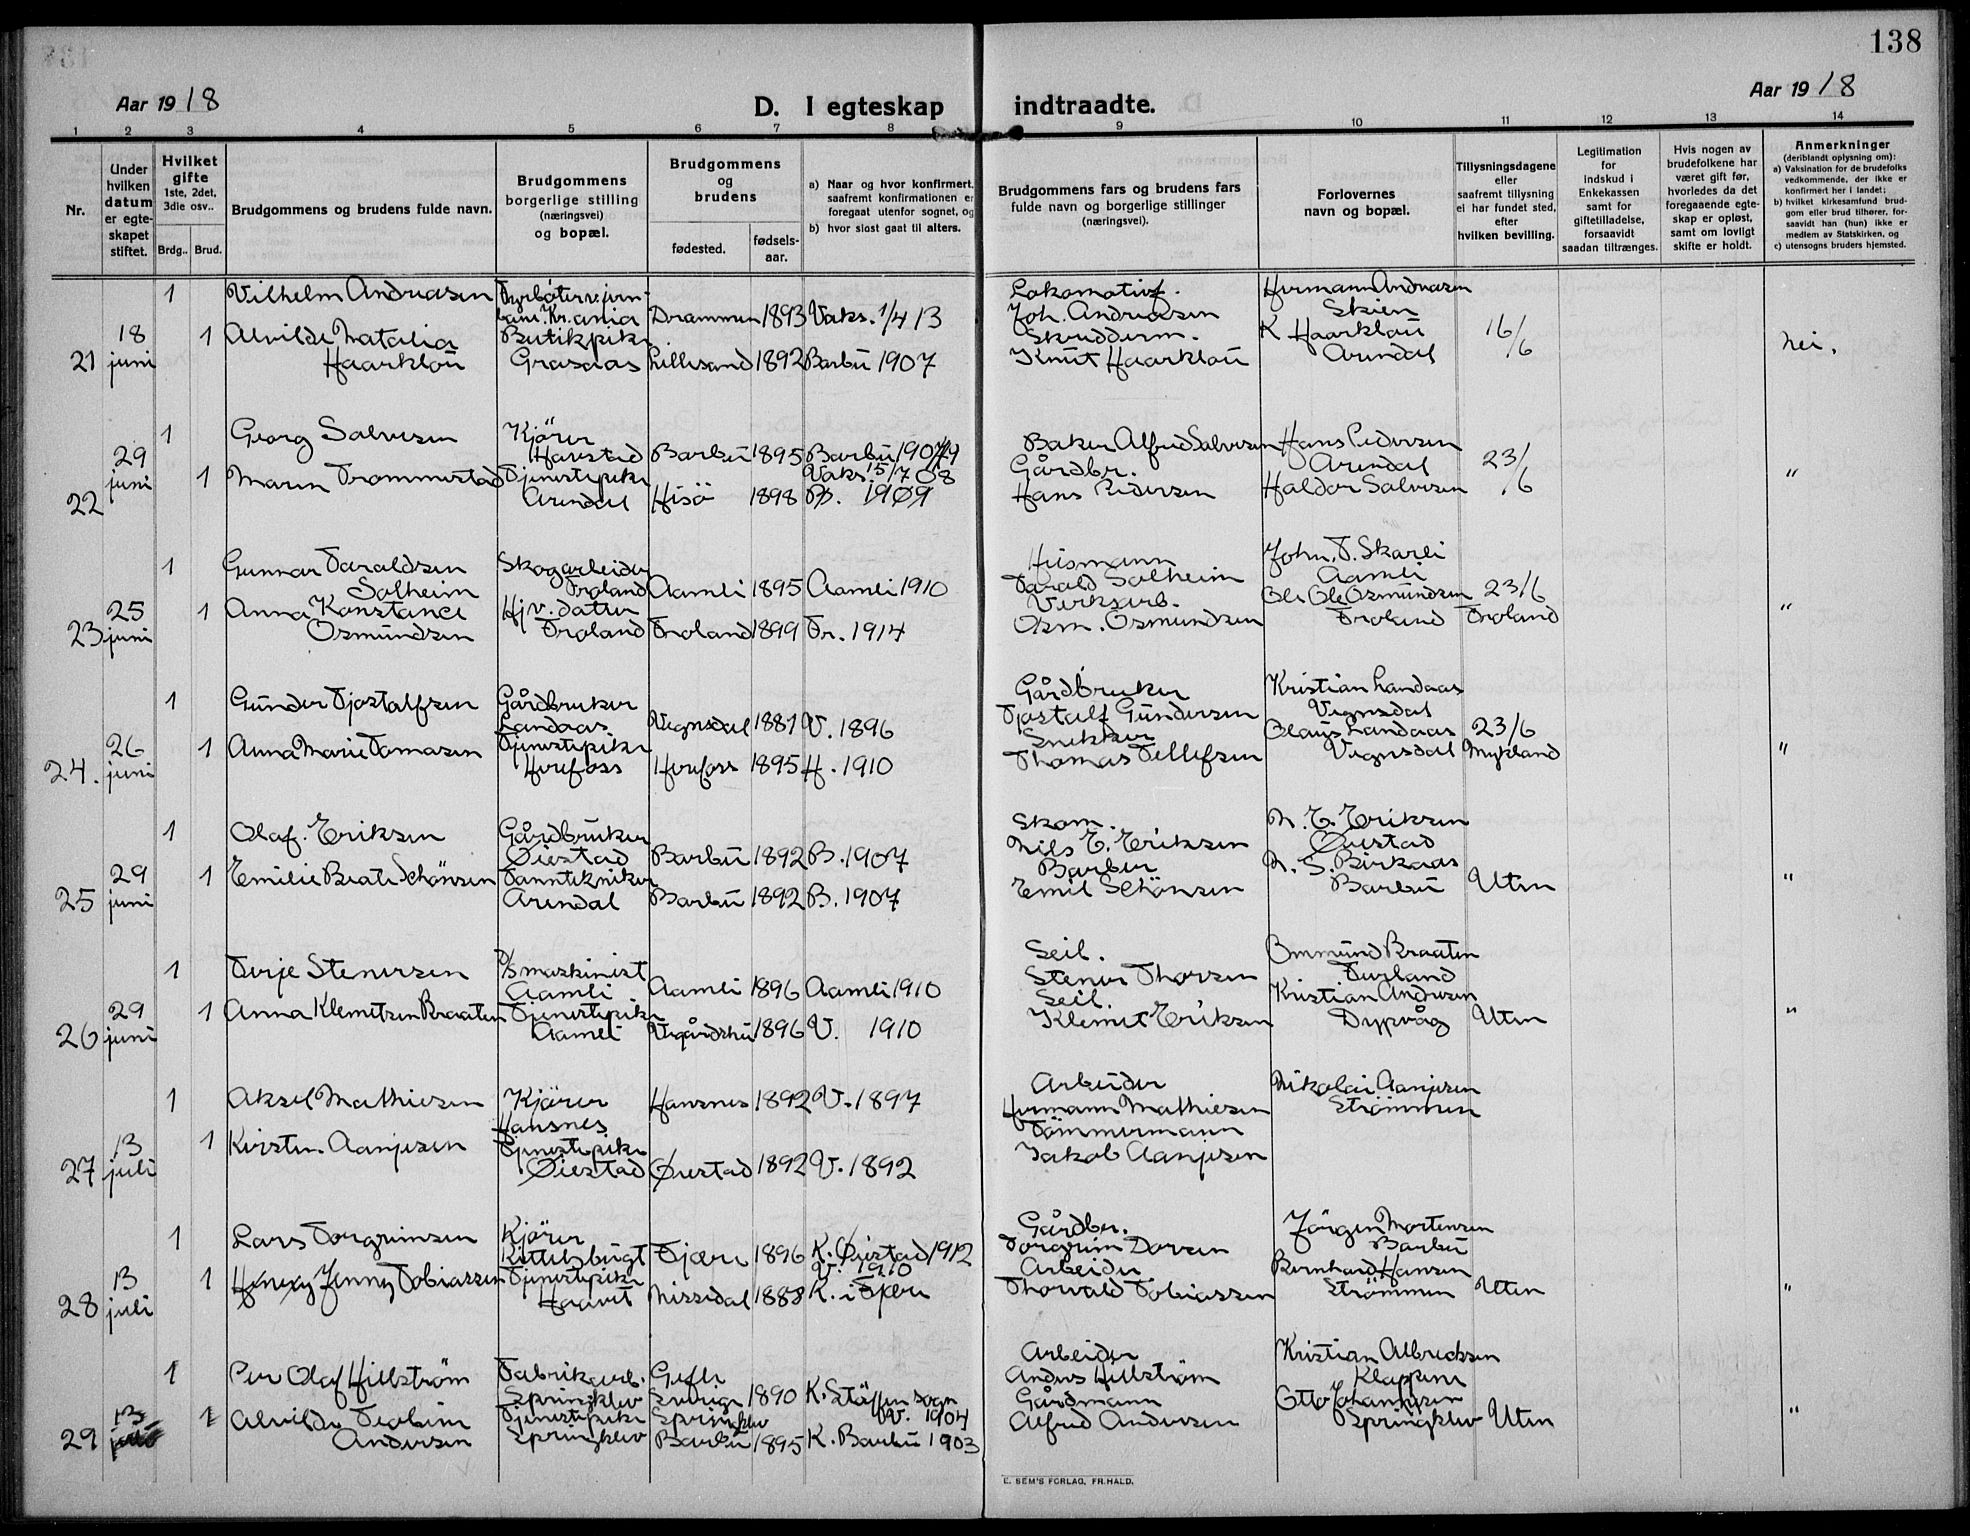 138
Aar 1918
D. I egteskap indtraadte.
Aar 1918
1 2 3 4 5 6 7 8 9 10 11 12 13 14
Nr.
Under hvilken datum er egteskapet stiftet.
Hvilket gifte 1ste, 2det, 3die osv..
Brdg.. Brud.
Brudgommens og brudens fulde navn.
Brudgommens borgerlige stilling (næringsvei) og bopæl.
Brudgommens og brudens
fødested. fødsels-aar.
a) Naar og hvor konfirmert, saafremt konfirmationen er foregaat utenfor sognet, og
b) hvor sidst gaat til alters.
Brudgommens fars og brudens fars fulde navn og borgerlige stillinger (næringsvei).
Forlovernes navn og bopæl.
Tillysningsdagene eller saafremt tillysning ei har fundet sted, efter hvilken bevilling.
Legitimation for indskud i Enkekassen samt for giftetilladelse, forsaavidt saadan tiltrænges.
Hvis nogen av brudefolkene har været gift før, hvorledes da det foregaaende egteskap er opløst, samt om lovligt skifte er holdt.
Anmerkninger (deriblandt oplysning om):
a) Vaksination for de brudefolks vedkommende, der ikke er konfirmert her i landet;
b) hvilket kirkesamfund brudgom eller brud tilhører, forsaavidt han (hun) ikke er medlem av Statskirken, og
c) utensogns bruders hjemsted.
21 18 juni
1 Vilhelm Andreasen Fyrböter v. jern-
bane. Kr.ania Drammen 1893 Vaks. 1/4 13
Lokomotivf. Joh. Andreasen Hermann Andreasen Skien
1 Alvilde Natalia Haarklou Butikpike Grasaas Lillesand 1892 Barbu 1907
Skredderm. Knut Haarklou K Haarklou Arendal 16/6 nei.
22 29 juni
1 Georg Salvesen Kjörer Harstad Barbu 1895 Barbu 1907
Vaks. 15/7 08
Baker Alfred Salvesen Hans Pedersen Arendal
1 Maren Trommestad Tjenestepike Arendal Hisö 1898 B. 1909
Gårdbr. Hans Pedersen Haldor Salvesen 23/6 "
23 25 juni
1 Gunnar Taraldsen Solheim Skogarbeider Froland Aamli 1895 Aamli 1910
Husmann Tarald Solheim John. T. Skarli Aamli
1 Anna Konstance Osmundsen Hj v. datter Froland Froland 1899 Fr. 1914
Verksarb. Osm. Osmundsen Ole Ole Osmundsen Froland 23/6 Froland "
24. 26 juni
1 Gunder Tjostalfsen Gårdbruker Landaas Vegusdal 1881 V. 1896
Gårdbruker Tjostalf Gundersen Kristian Landaas Vegusdal
1 Anna Marie Tomasen Tjenestepike Herefoss Herefoss 1895 H. 1910
Snekker Thomas Tellefsen Olaus Landaas Vegusdal 23/6 Mykland "
25 29 juni
1 Olaf. Eriksen Gårdbruker Öiestad Barbu 1892 B. 1907
Skom. Nils E. Eriksen N. E. Eriksen Öiestad
1 Emilie Beate Schönsen Tanntekniker Arendal Barbu 1892 B. 1907
Barber Emil Schönsen N. S. Birkaas Barbu Uten "
26 29 juni
1 Terje Stenersen D/S maskinist Aamli Aamli 1896 Aamli 1910
Seil. Stener Thorsen Ommund Braaten
1 Anna Klemetsen Braaten Tjenestepike Aamli Vegårdshei 1896 V. 1910
Seil. Klemet Eriksen Kristian Andersen Dypvåg Uten "
27 13 juli
1 Aksel Mathiesen Kjörer Hansnes Hansnes 1892 V. 1897
Arbeider Hermann Mathiesen Nikolai Aanjesen Strömmen
1 Kirsten. Aanjesen Tjenestepike Öiestad Öiestad 1892 V. 1892
Tömmermann Jakob Aanjesen
28 13 juli
1 Lars Torgrimsen Kjörer Kittelsbugt Fjære 1896 K. Öiestad 1912
Gårdbr. Torgrim Dorsen Jörgen Mortensen Barbu
1 Jenny Tobiassen Tjenestepike Haavet Nissedal 1888 V. 1910 K. i Fjære
Arbeider Thorvald Tobiassen Bernhard Hansen Strömmen Uten "
29 13
1 Per Olaf Hillström Fabrikarb. Springklev Gefle Sverige 1890 K. Stäffen sogn
Arbeider Anders Hillström Kristian Albrechsen Klappene
1 Alvilde Andersen Tjenestepike Springklev Springklev Barbu 1895 V. 1904 K. Barbu 1903
Gårdmann Alfred Andersen Otto Johannesen Springklev Uten "
E. SEM'S FORLAG, FR.HALD.